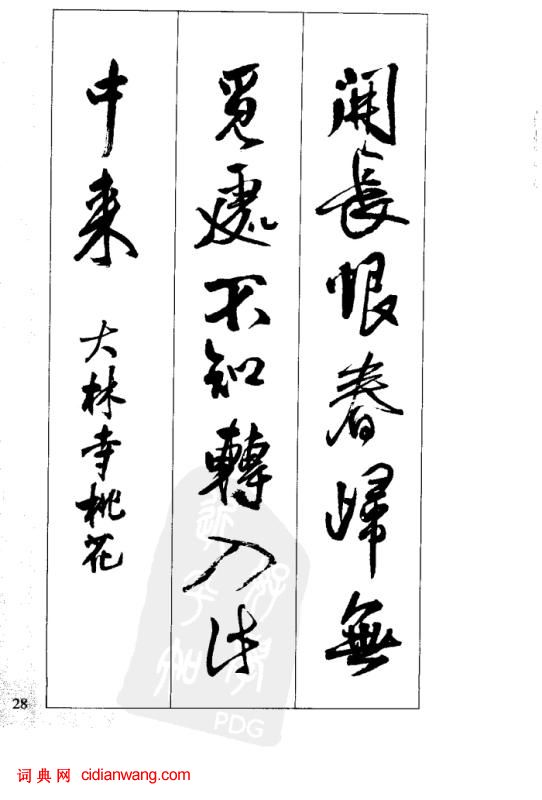 開長恨春歸無
覓處不知轉入此
中來
大林寺桃花
28
PDG
词典网 cidianwang.com